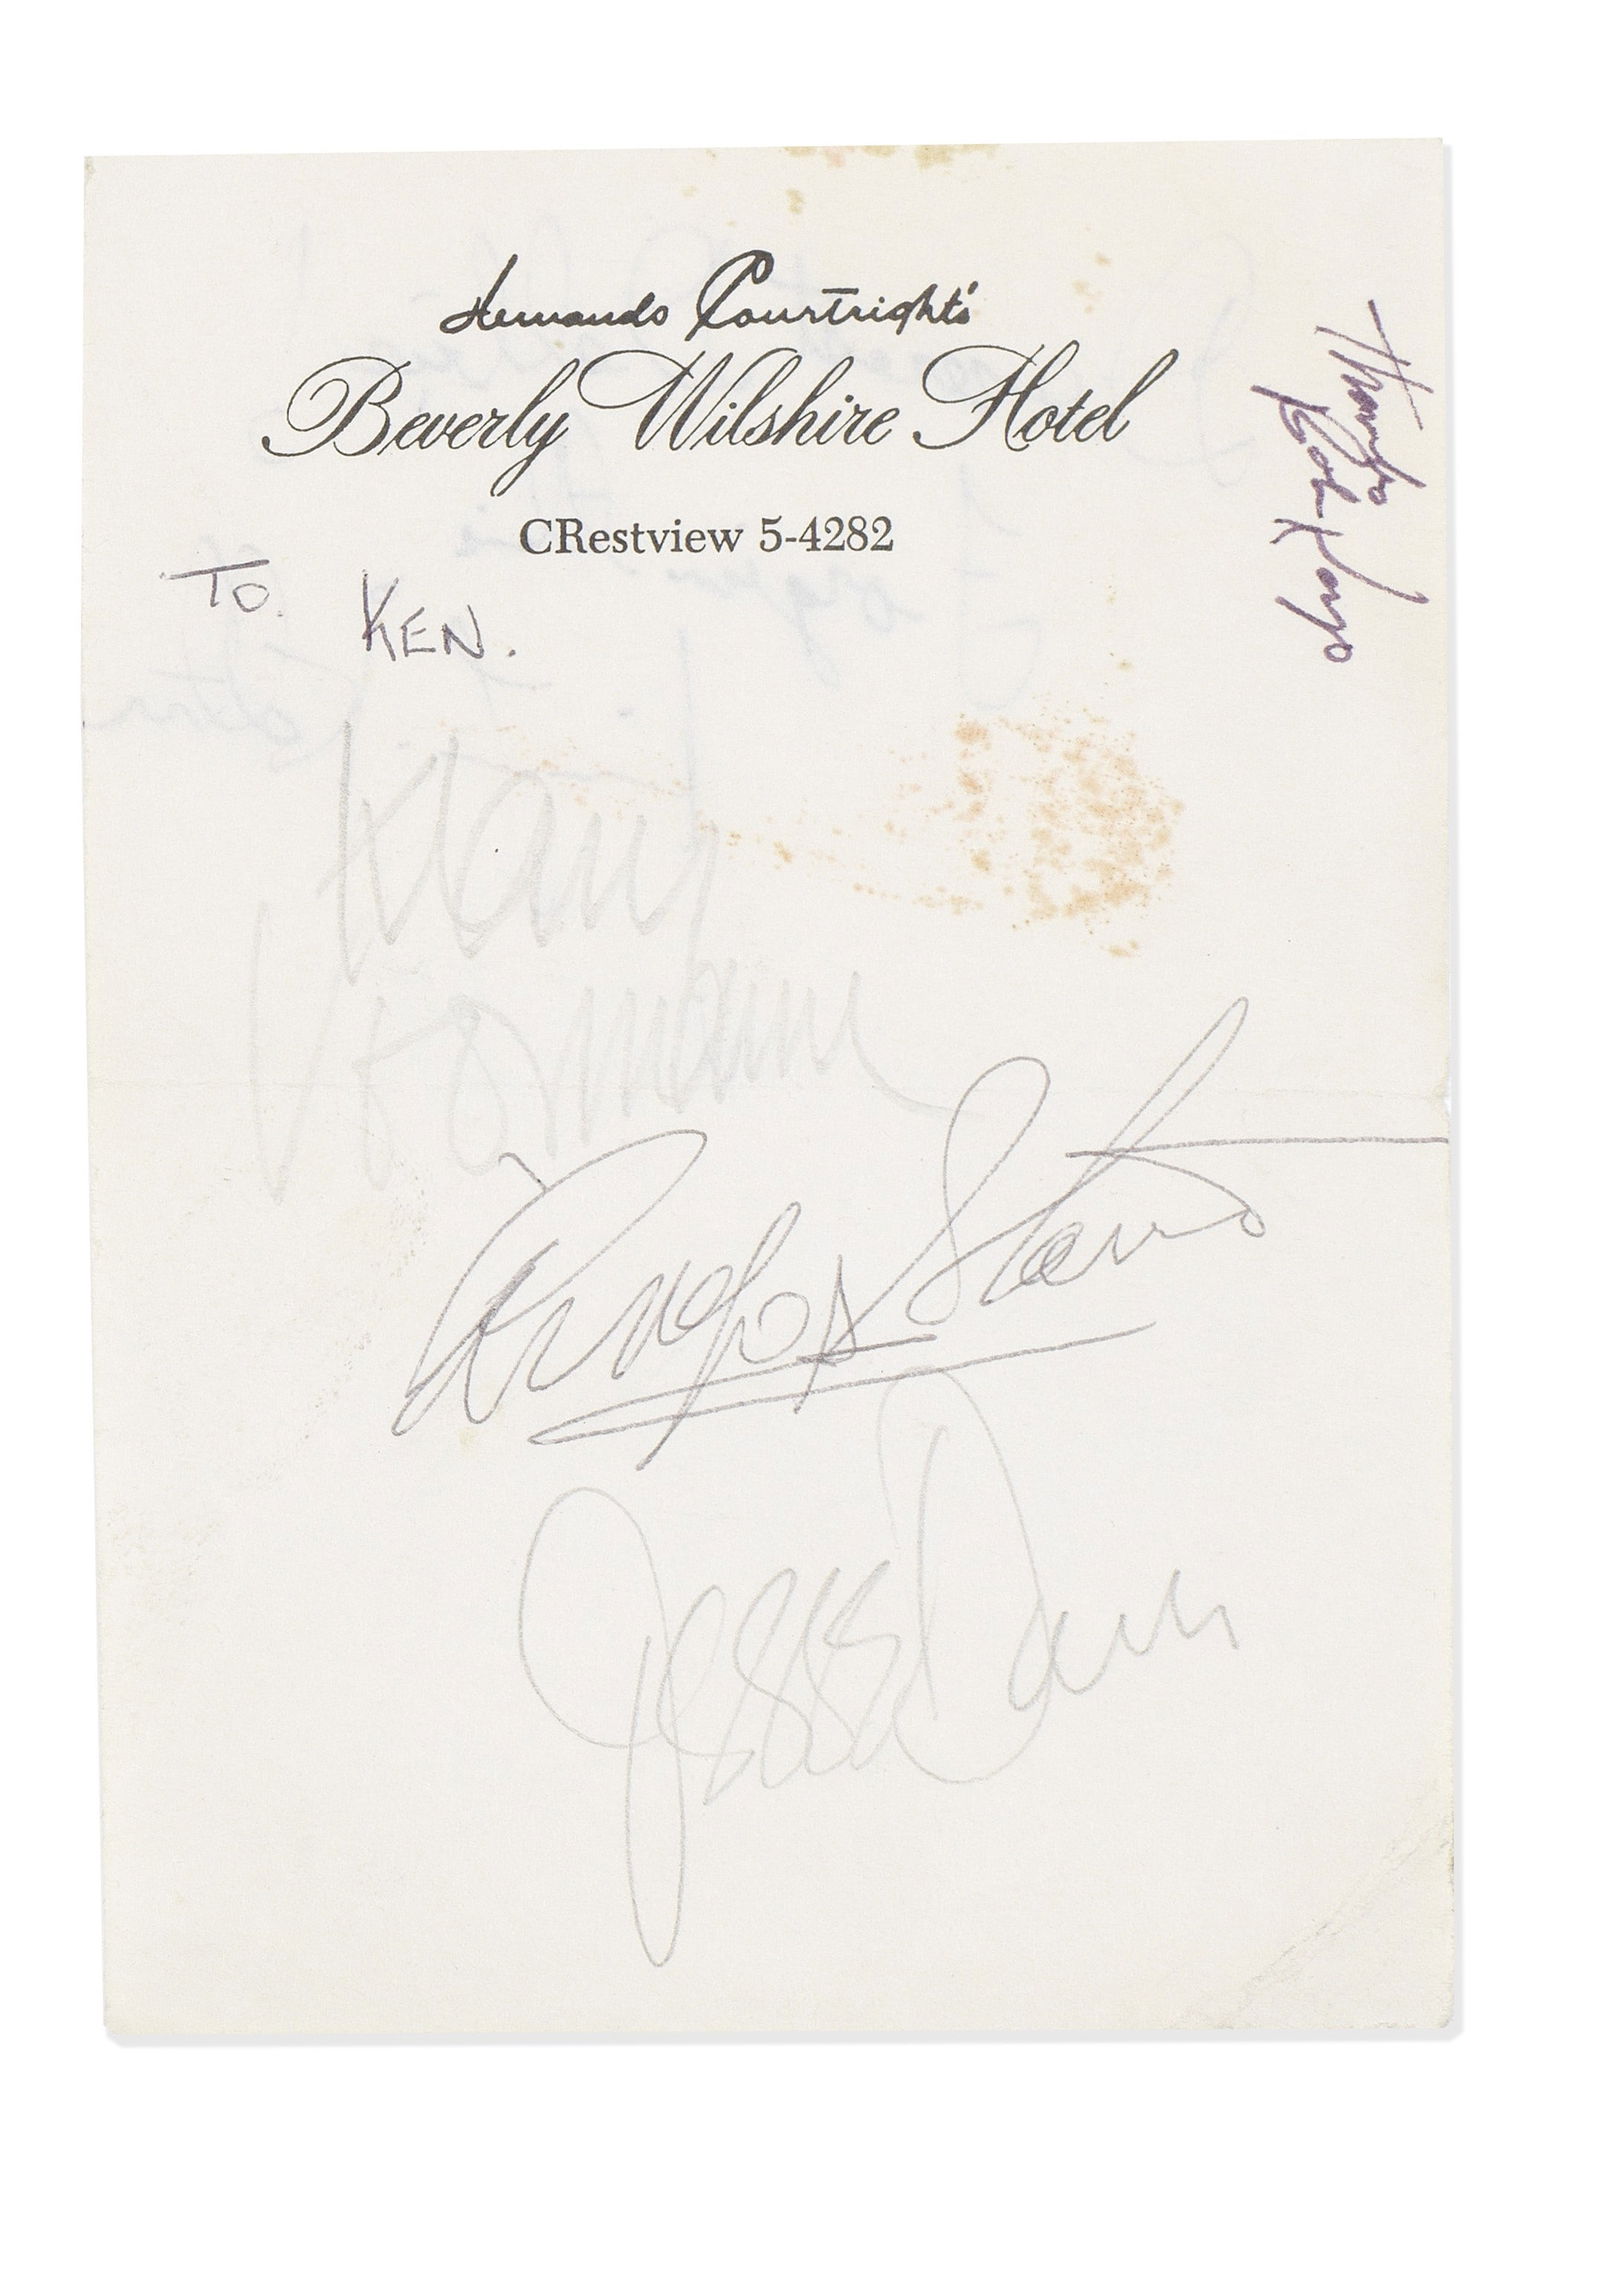 Hernando Courtright's
Beverly Wilshire Hotel
CRestview 5-4282
TO KEN.
Klaus
Voormann
Ringo Starr
Jesse Davis
Thanks